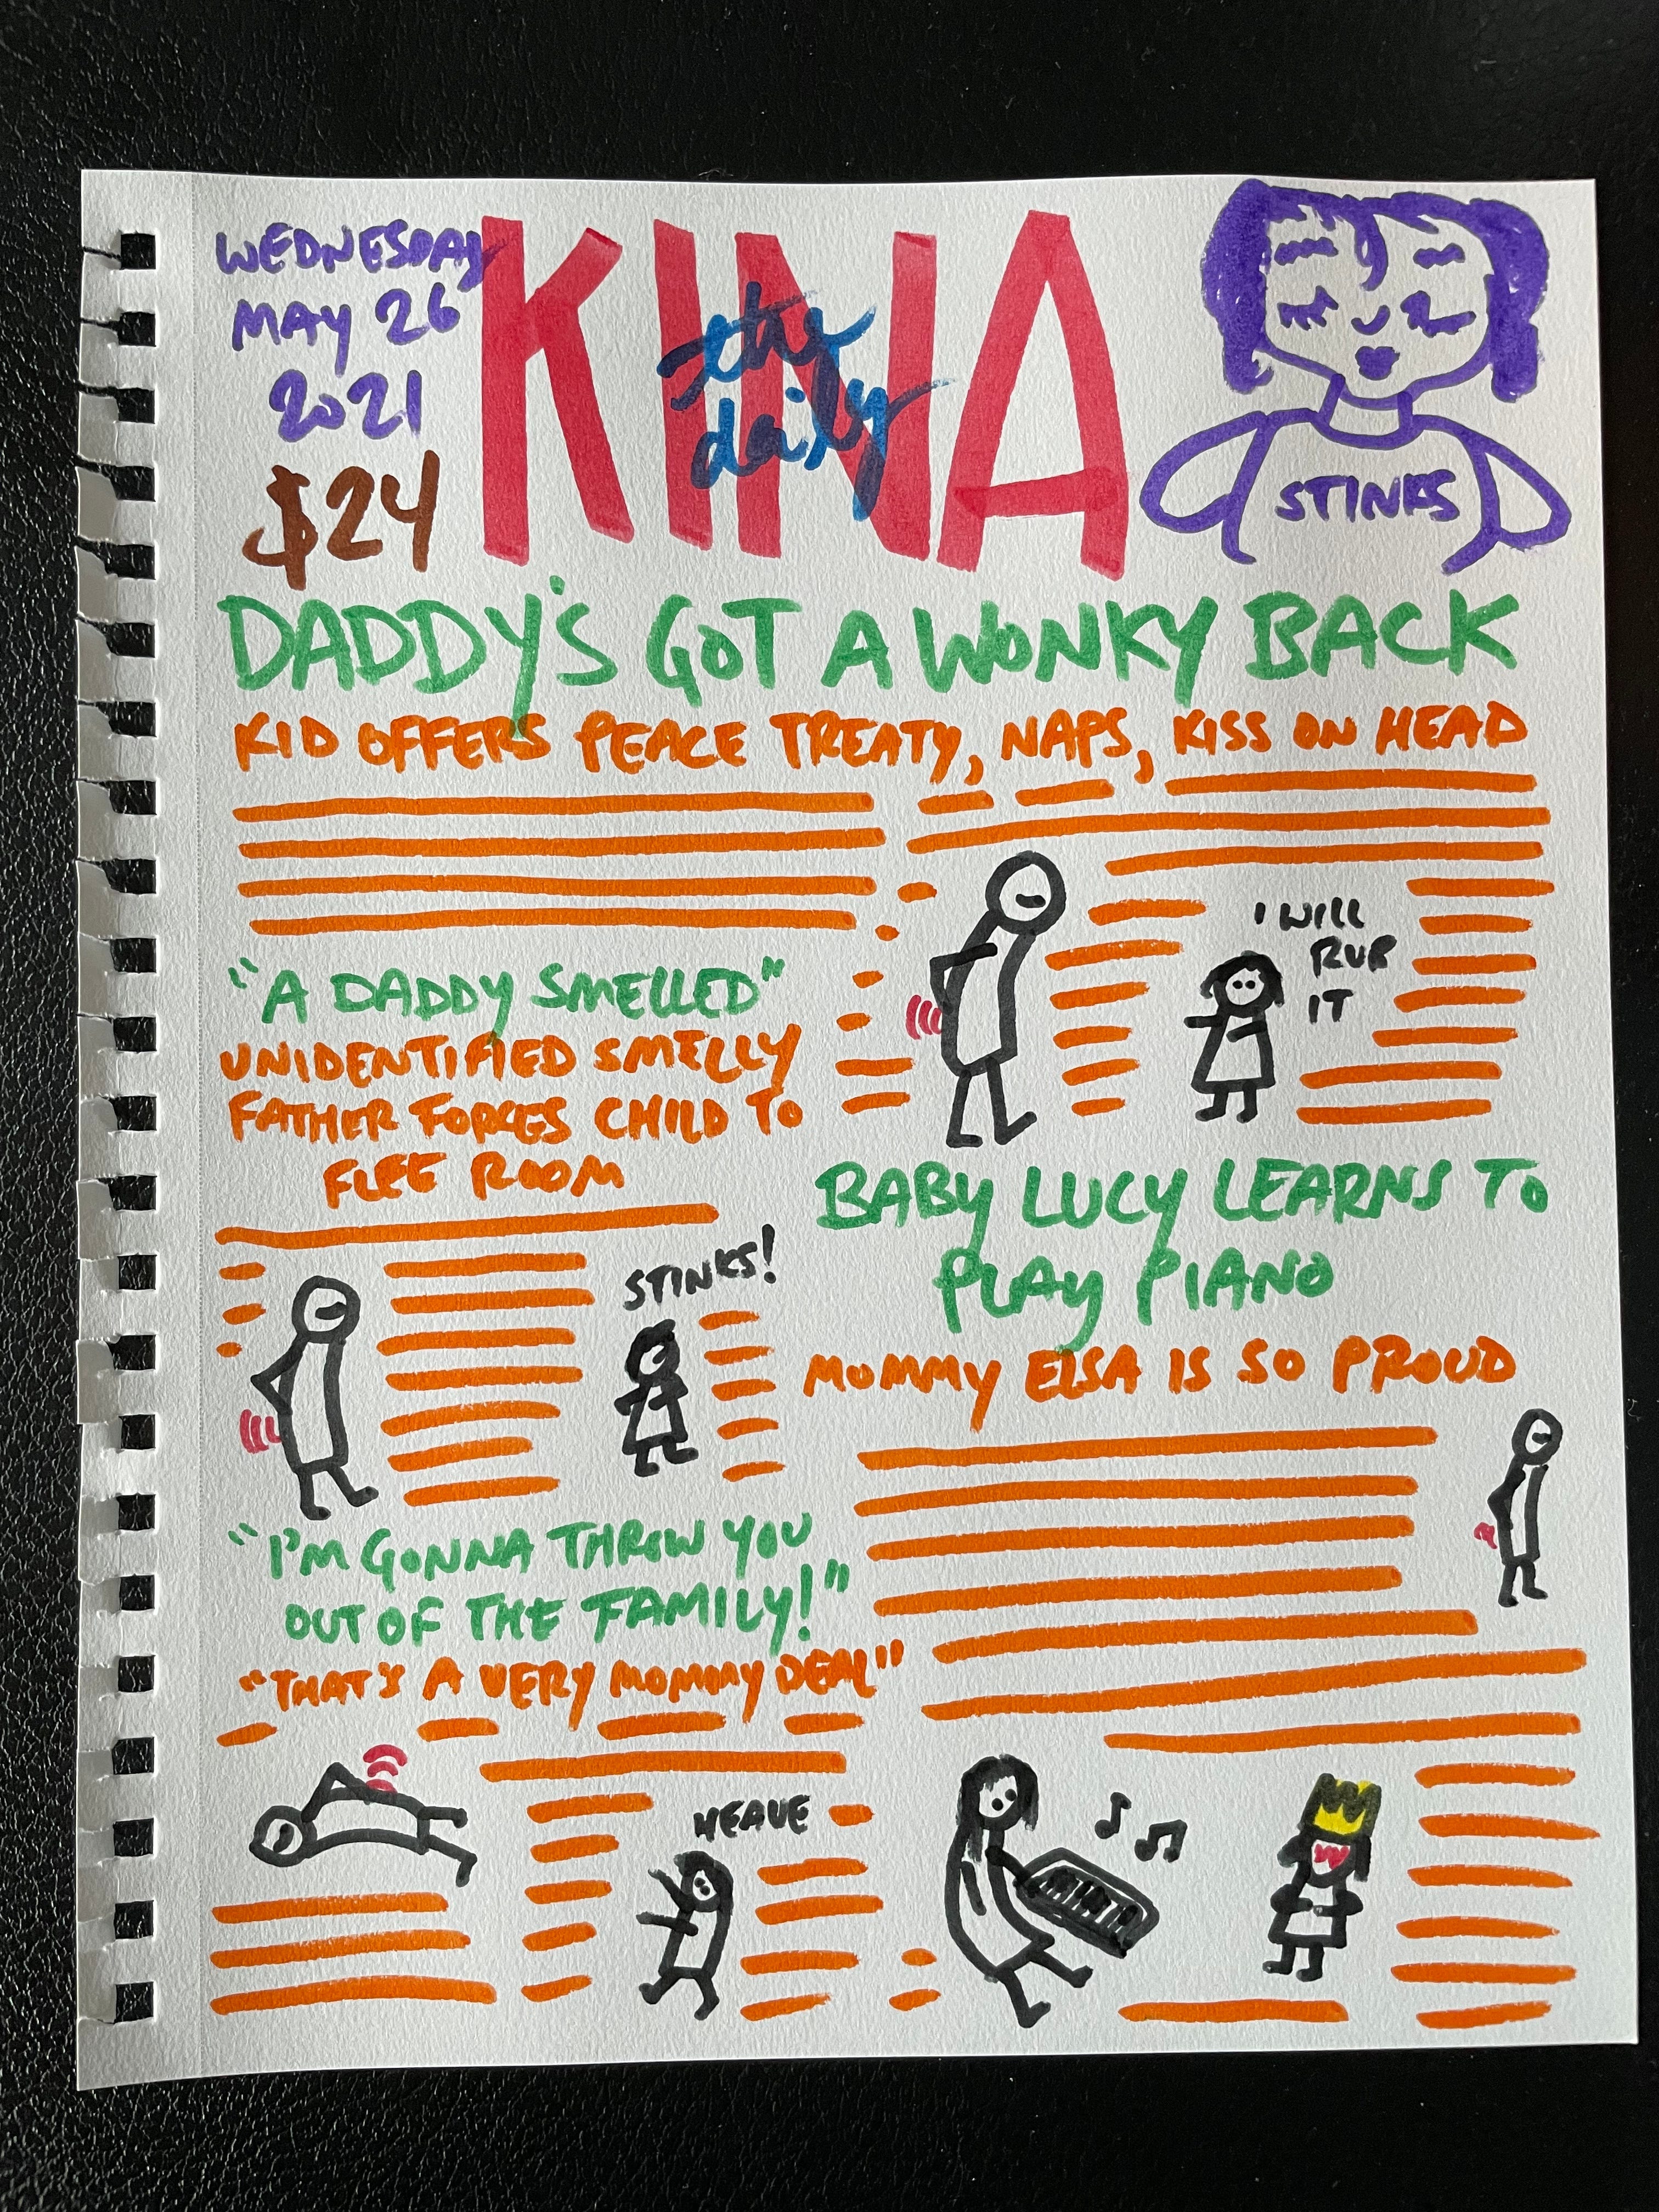 WEDNESDAY
MAY 26
2021
$24
the
daily
KINA
STINKS
DADDY'S GOT A WONKY BACK
KID OFFERS PEACE TREATY, NAPS, KISS ON HEAD
I WILL
RUB
IT
"A DADDY SMELLED"
UNIDENTIFIED SMELLY
FATHER FORCES CHILD TO
FLEE ROOM
STINKS!
BABY LUCY LEARNS TO
PLAY PIANO
MOMMY ELSA IS SO PROUD
"I'M GONNA THROW YOU
OUT OF THE FAMILY!"
"THAT'S A VERY MOMMY DEAL"
HEAVE